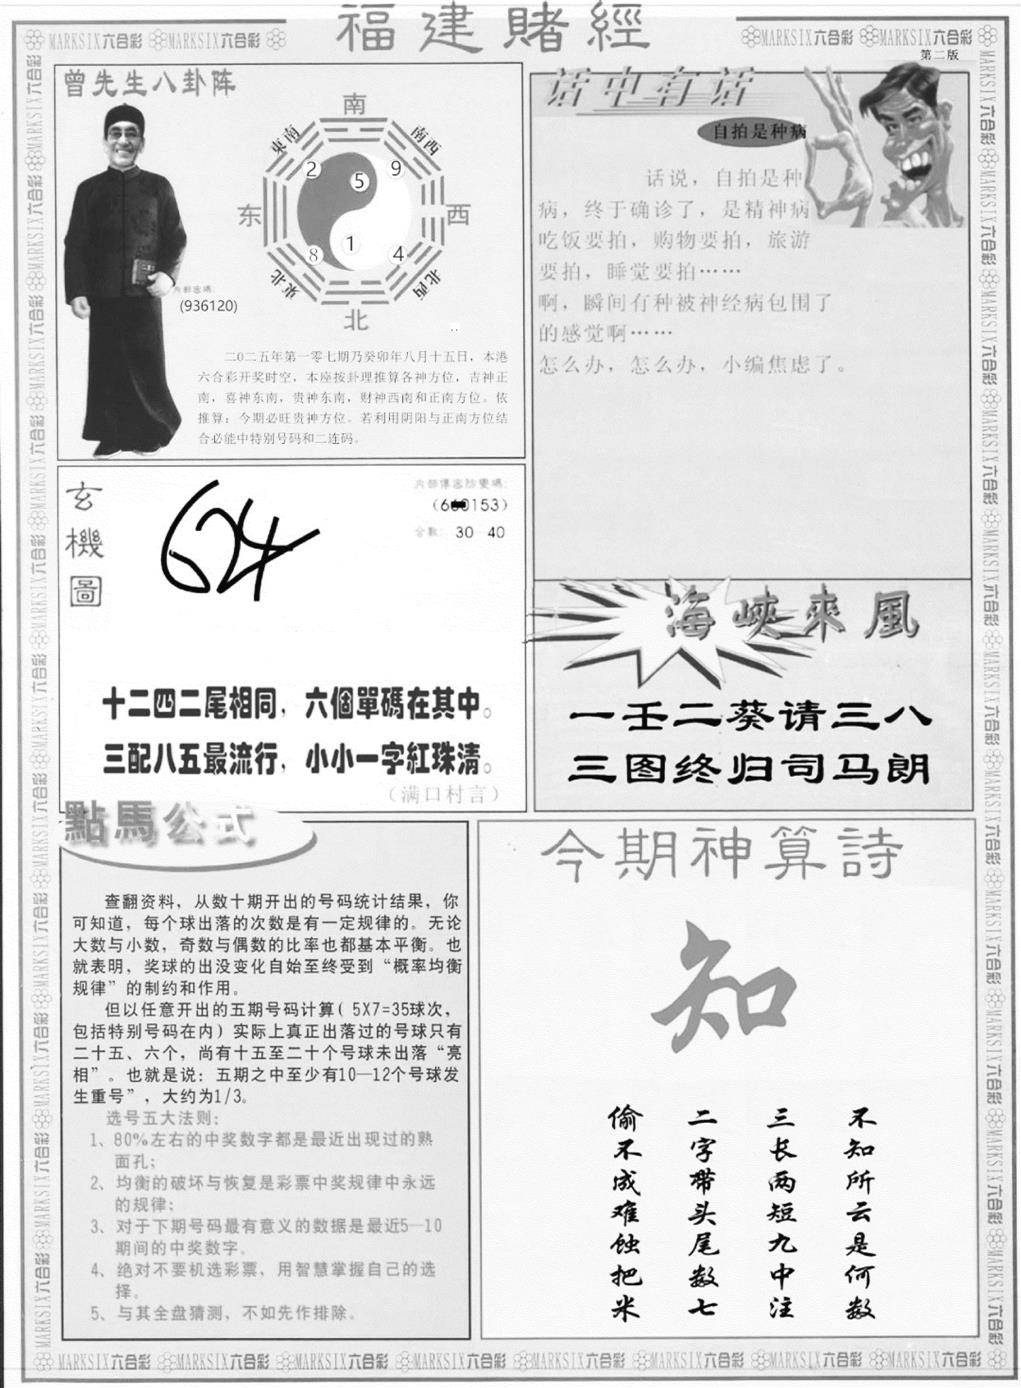 福建賭經
MARKSIX六合彩 MARKSIX六合彩
MARKSIX六合彩 MARKSIX六合彩
第二版
曾先生八卦阵
南
東南
南西
2
9
5
东
西
1
8
4
東北
北西
北
内部密碼:
(936120)
二0二五年第一零七期乃癸卯年八月十五日，本港
六合彩开奖时空，本座按卦理推算各神方位，吉神正
南，喜神东南，贵神东南，财神西南和正南方位。依
推算：今期必旺贵神方位。若利用阴阳与正南方位结
合必能中特别号码和二连码。
话中有话
自拍是种病
话说，自拍是种
病，终于确诊了，是精神病
吃饭要拍，购物要拍，旅游
要拍，睡觉要拍……
啊，瞬间有种被神经病包围了
的感觉啊……
怎么办，怎么办，小编焦虑了。
玄機圖
624
合數: 30-40
十二四二尾相同，六個單碼在其中。
三配八五最流行，小小一字紅珠清。
（满口村言）
海峽來風
一壬二葵请三八
三图终归司马朗
點馬公式
查翻资料，从数十期开出的号码统计结果，你
可知道，每个球出落的次数是有一定规律的。无论
大数与小数，奇数与偶数的比率也都基本平衡。也
就表明，奖球的出没变化自始至终受到“概率均衡
规律”的制约和作用。
但以任意开出的五期号码计算( 5X7=35球次，
包括特别号码在内）实际上真正出落过的号球只有
二十五、六个，尚有十五至二十个号球未出落“亮
相”。也就是说：五期之中至少有10—12个号球发
生重号”，大约为1/3。
选号五大法则:
1、80%左右的中奖数字都是最近出现过的熟
面孔；
2、均衡的破坏与恢复是彩票中奖规律中永远
的规律；
3、对于下期号码最有意义的数据是最近5—10
期间的中奖数字。
4、绝对不要机选彩票，用智慧掌握自己的选
择。
5、与其全盘猜测，不如先作排除。
今期神算詩
知
不知所云是何数
三长两短九中注
二字带头尾数七
偷不成难蚀把米
MARKSIX六合彩 MARKSIX六合彩 MARKSIX六合彩 MARKSIX六合彩 MARKSIX六合彩 MARKSIX六合彩 MARKSIX六合彩 MARKSIX六合彩